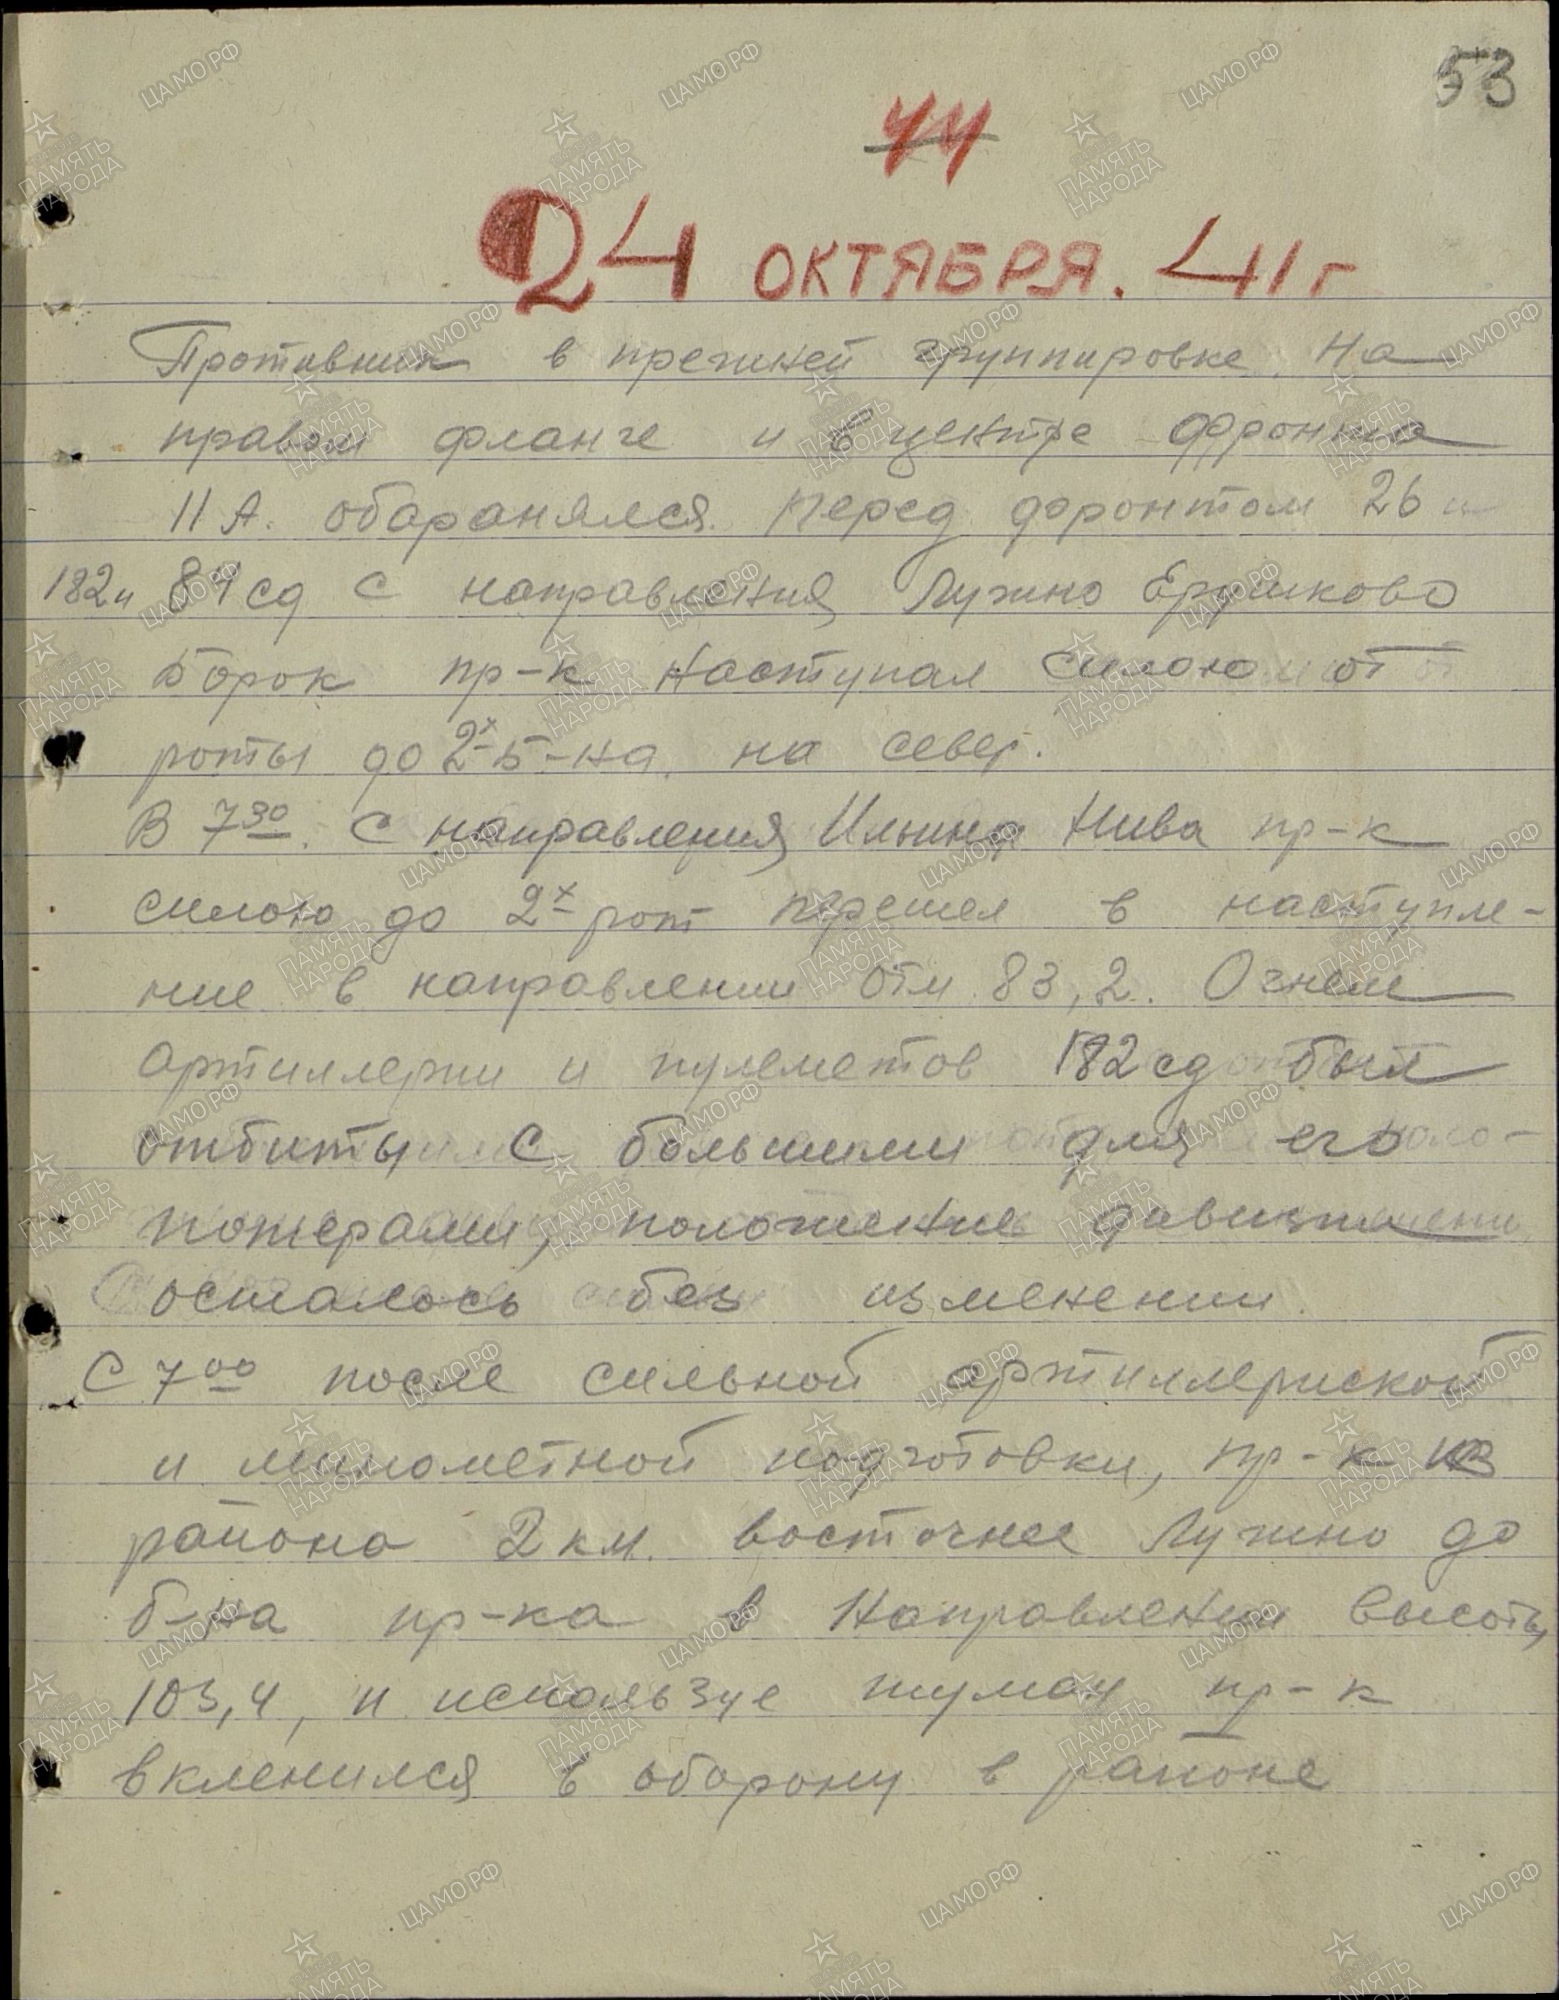 53
44
24 ОКТЯБРЯ. 41 г
Противник в прежней группировке. На
правом фланге и в центре фронта
11 А. обаранялся. Перед фронтом 26 и
182 и 84 сд с направления Лужно Ерушково
Борок пр-к наступал силою от
роты до 2х б-на. на север.
В 7 30. с направления Ильина Нива пр-к
силою до 2х рот перешел в наступле-
ние в направлении отм. 83,2. Огнем
артиллерии и пулеметов 182 сд был
отбиты с большими для его
потерами, положение дивизии
осталось без изменении.
С 7 00 после сильной артиллериской
и минометной подготовки, пр-к из
района 2 км. восточнее Лужно до
б-на пр-ка в направлении высоты
103,4, и используе туман пр-к
вкленился в оборону в районе